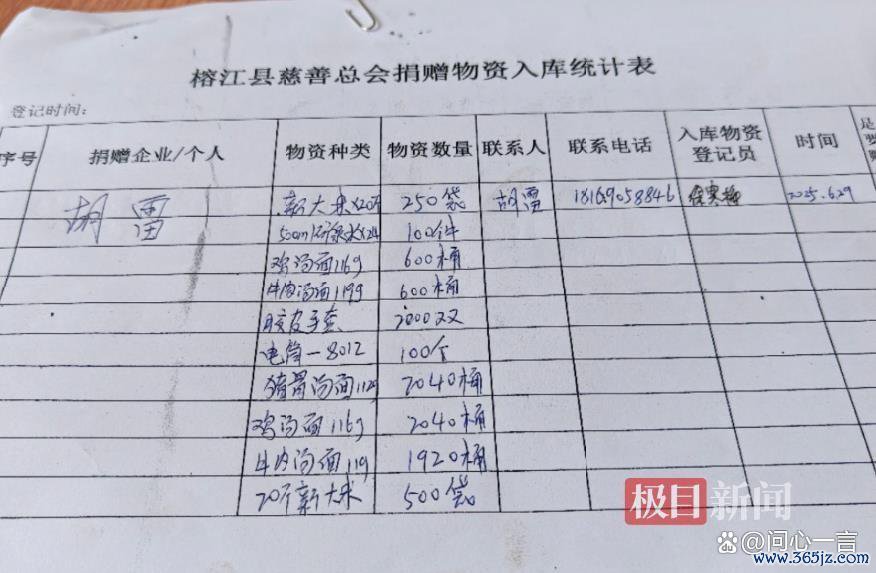 榕江县慈善总会捐赠物资入库统计表
登记时间：
序号 捐赠企业/个人 物资种类 物资数量 联系人 联系电话 入库物资登记员 时间 是
胡雷 新大米×20斤 250袋 胡雷 18169058846 2025.6.29
500ml 水×24 100件
鸡汤面116g 600桶
牛肉汤面119g 600桶
胶皮手套 2000双
电筒-8012 100个
猪骨汤面112g 2040桶
鸡汤面116g 2040桶
牛肉汤面119 1920桶
20斤新大米 500袋
极目新闻
@问心一言
www.365jz.com